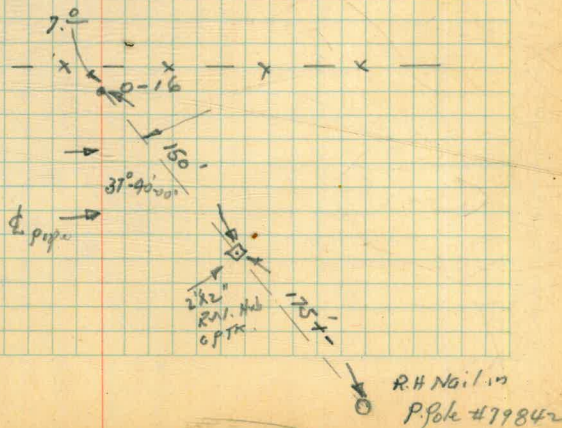 7.0
0-16
150'
37°-40'-00"
℄ pipe
2"x2"
Hub
175'±
R.H Nail in
P.Pole #79842